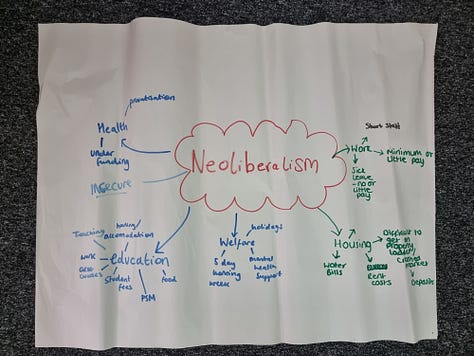 privatisation
Health
under
funding
INSECURE
Neoliberalism
Short Staff
Work
Minimum or
little pay
Sick
Leave
- no or
little
pay
Teaching
accomodation
work
education
Student
fees
PSM
food
holidays
Welfare
5 day
working
week
mental
health
support
Housing
Water
Bills
Rent
costs
Difficult to
get in
property
ladder/
market
Deposits